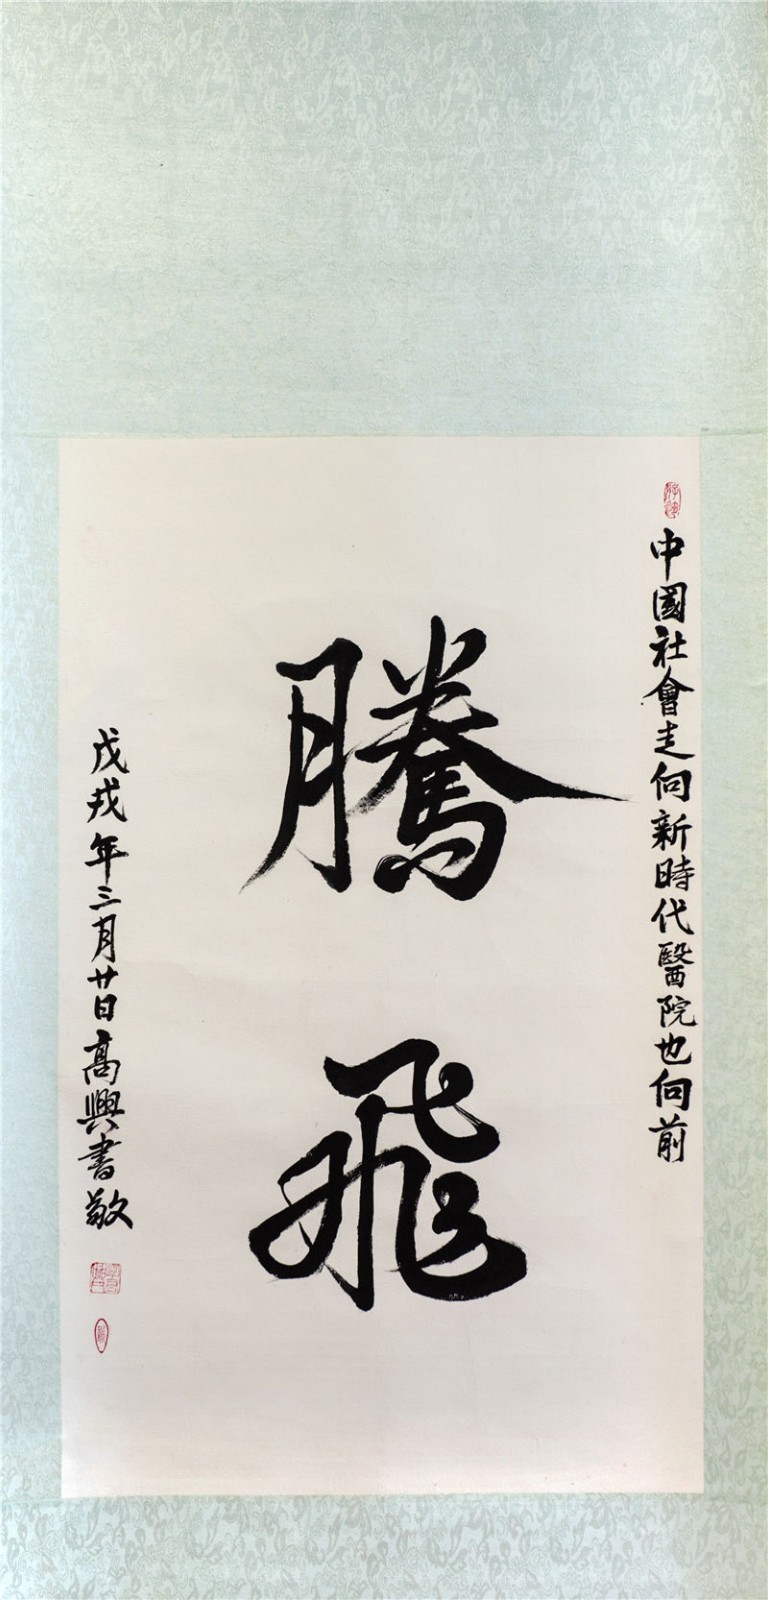 中國社會走向新時代醫院也向前
騰飛
戊戌年三月廿日高興書敬